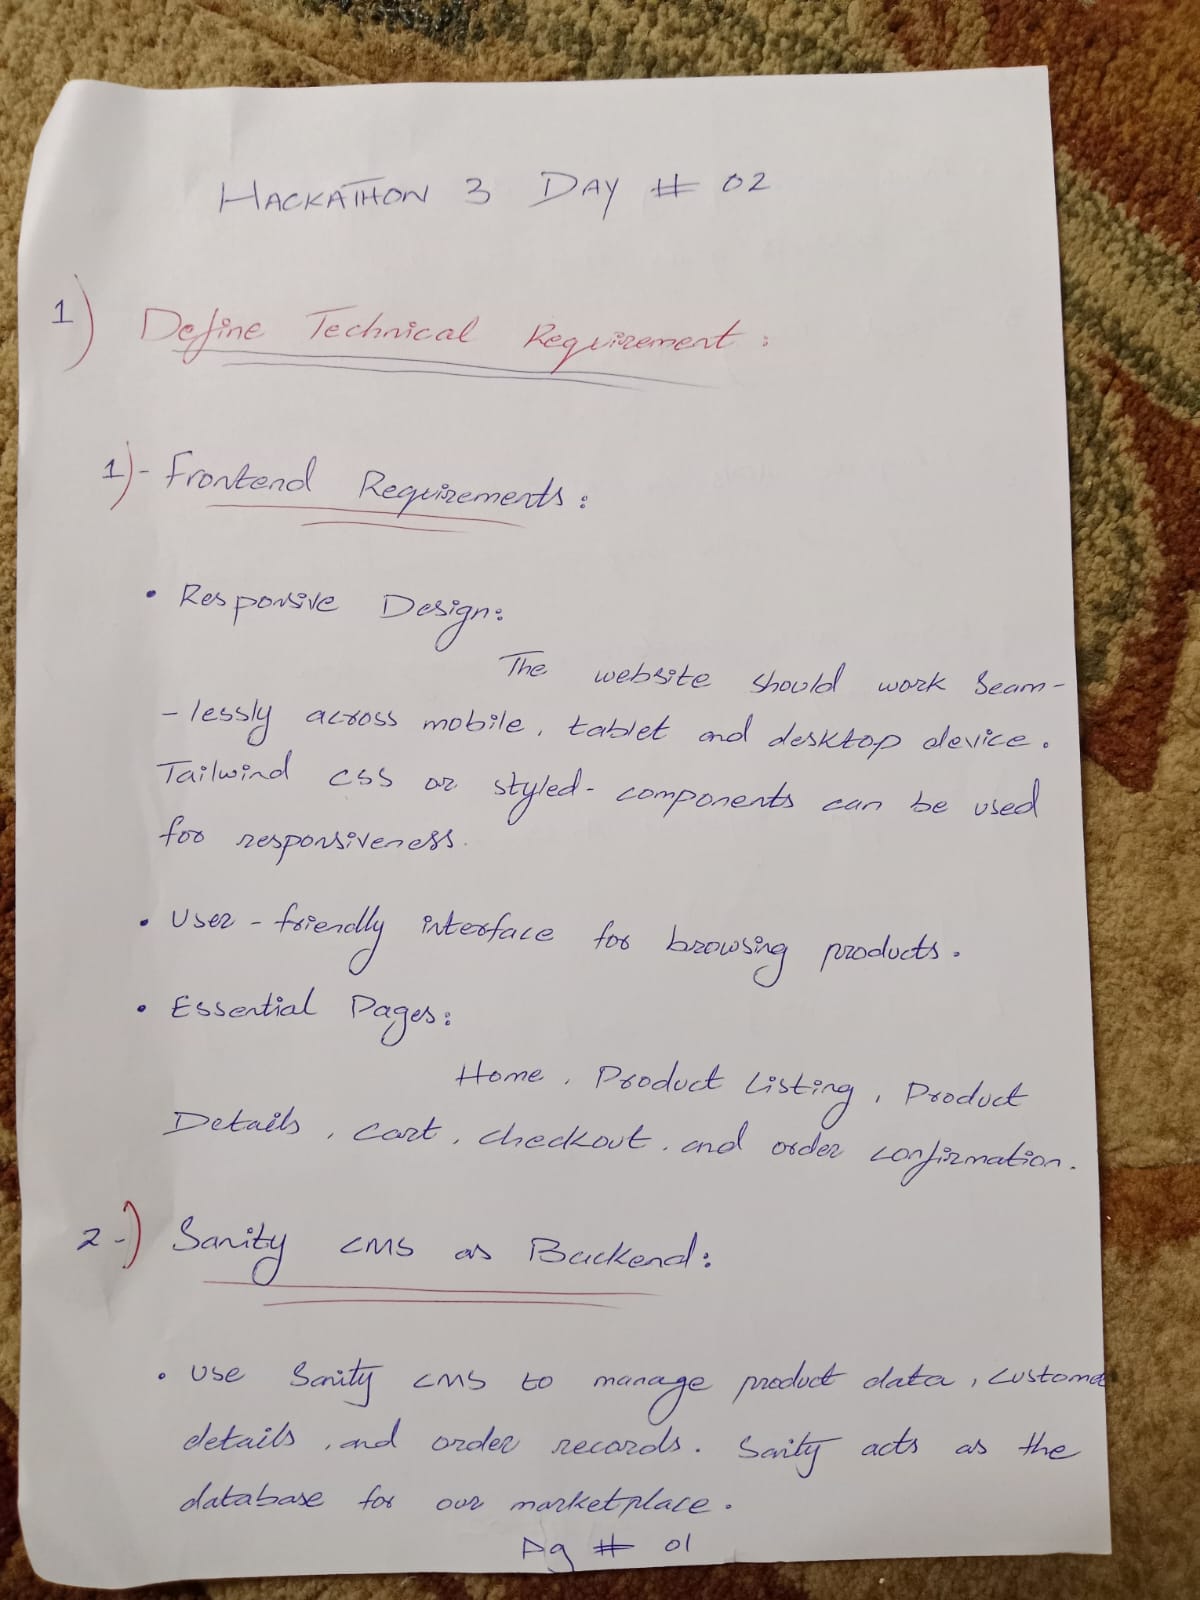 HACKATHON 3 DAY # 02
1) Define Technical Requirement :
1)- Frontend Requirements :
• Responsive Design :
The website should work Seam-
- lessly across mobile, tablet and desktop device.
Tailwind CSS or styled- components can be used
for responsiveness.
• User - friendly interface for browsing products.
• Essential Pages :
Home, Product Listing, Product
Details, Cart, Checkout, and order confirmation.
2-) Sanity CMS as Backend :
• Use Sanity CMS to manage product data, custome
details, and order records. Sanity acts as the
database for our marketplace.
Pg # 01